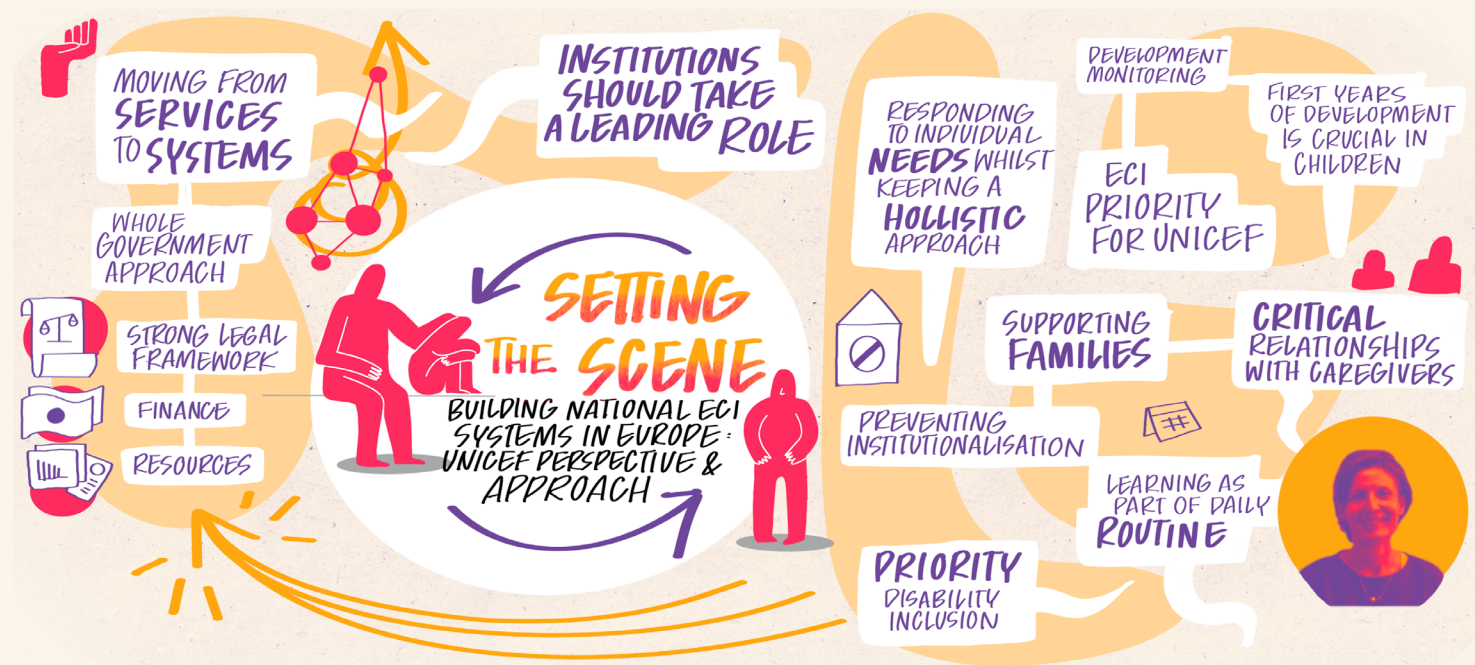 MOVING FROM
SERVICES
TO SYSTEMS
WHOLE
GOVERNMENT
APPROACH
STRONG LEGAL
FRAMEWORK
FINANCE
RESOURCES
INSTITUTIONS
SHOULD TAKE
A LEADING ROLE
SETTING
THE SCENE
BUILDING NATIONAL ECI
SYSTEMS IN EUROPE:
UNICEF PERSPECTIVE &
APPROACH
RESPONDING
TO INDIVIDUAL
NEEDS WHILST
KEEPING A
HOLLISTIC
APPROACH
DEVELOPMENT
MONITORING
FIRST YEARS
OF DEVELOPMENT
IS CRUCIAL IN
CHILDREN
ECI
PRIORITY
FOR UNICEF
SUPPORTING
FAMILIES
CRITICAL
RELATIONSHIPS
WITH CAREGIVERS
PREVENTING
INSTITUTIONALISATION
LEARNING AS
PART OF DAILY
ROUTINE
PRIORITY
DISABILITY
INCLUSION